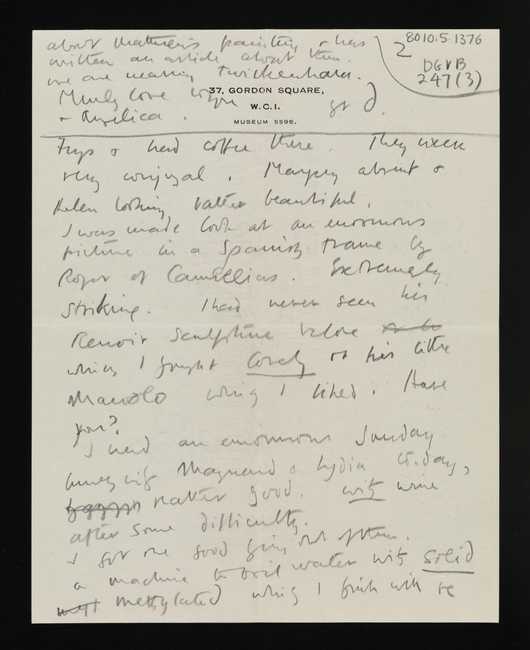 about Matthew's painting & has
written an article about them.
we are nearing Twickenham.
Much love to you
& Angelica. yr D.
2
8010.5.1376
DG VB
247(3)
37, GORDON SQUARE,
W.C.1.
MUSEUM 5596.
Frys & had coffee there. They were
very convivial. Margery absent &
Helen looking rather beautiful.
I was made look at an enormous
picture in a Spanish frame by
Roger of Camellias. Extremely
striking. I had never seen his
Renoir sculpture before
which I thought lovely or his little
Manolo which I liked. Have
you?
I had an enormous Sunday
lunch with Maynard & Lydia to.day,
rather good. with wine
after some difficulty.
I got one good thing out of them.
a machine to boil water with solid
methylated which I think will be